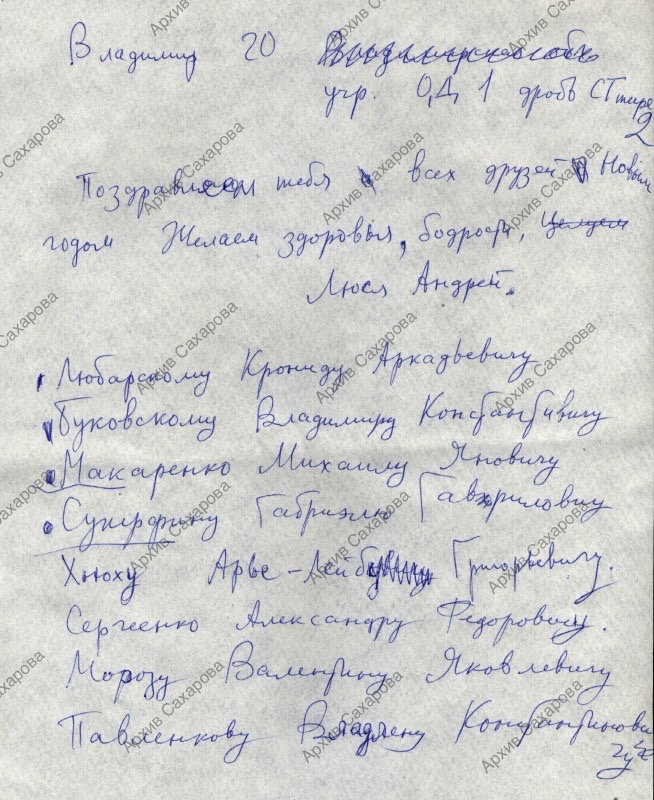 Владимир 20
учр. ОД, 1 дробь СТ тире
2
Поздравляем тебя всех друзей Новым
годом Желаем здоровья, бодрости, Целуем
Люся Андрей.
Любарскому Крониду Аркадьевичу
Буковскому Владимиру Константиновичу
Макаренко Михаилу Яновичу
Суперфину Габриэлю Гавриловичу
Хнюху Арье-Лейбу Григорьевичу.
Сергеенко Александру Федоровичу.
Морозу Валентину Яковлевичу
Павленкову Владлену Константинови
чу
Архив Сахарова